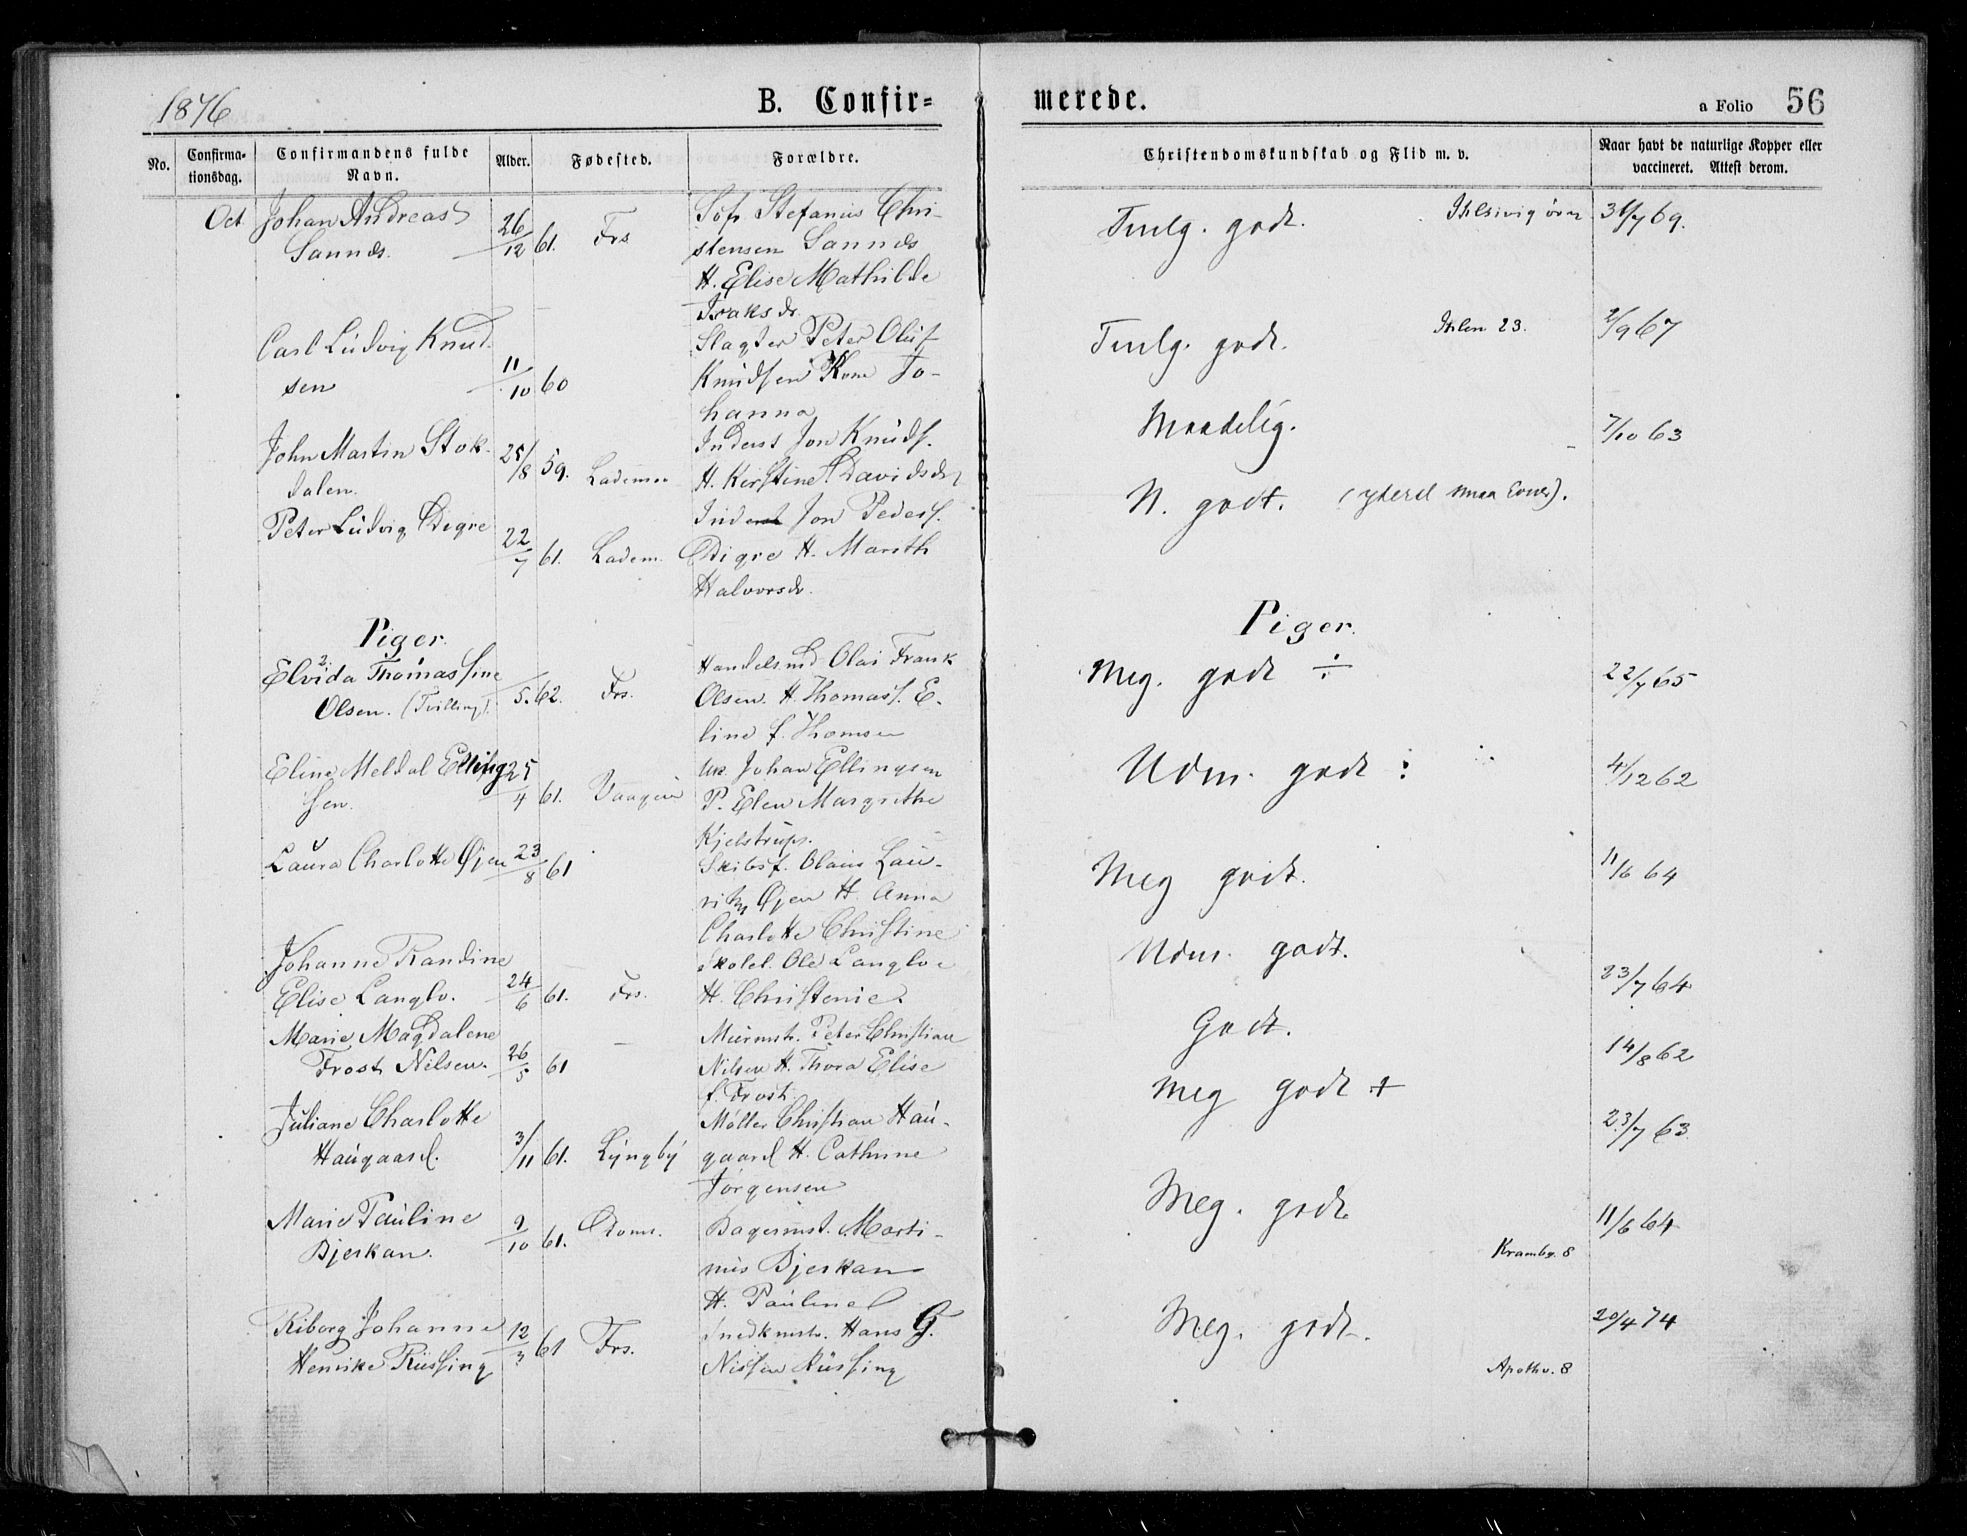 1876 B. Confir- merede. a Folio 56
No. Confirma- Confirmandens fulde Alder. Fødested. Forældre. Christendomskundskab og Flid m. v. Naar havt de naturlige Kopper eller
tionsdag. Navn. vaccineret. Attest derom.
Oct Johan Andreas 26/12 61. Frs Stefanus Chri-
Sannes. stensen Sannes
H. Elise Mathilde
Isaksdr.
Temlg. godt. 31/7 69.
Carl Ludvig Knud- 11/10 60 Slagter Peter Oluf
sen Knudsen Kone Jo-
hanna
Temlg. godt. Ihlen 23. 2/9 67
John Martin Stok- 25/8 59. Lademoen Inderst Jon Knuds.
dalen. H. Kerstine Davidsdr
Maadelig. 7/10 63
Peter Ludvig Digre 22/7 61. Ladem. Inderst Jon Peders.
Digre H. Marith
Halvorsdr.
N. godt. (yderst smaa Evner).
Piger. Piger.
Elvida Thomassine 5. 62. Frs. Handelsmd Olai Frank
Olsen. (Tvilling). Olsen. H. Thomass. E-
line f. Thomsen
Meg. godt ÷ 22/7 65
Eline Meldal Elling 25/4 61. Johan Ellingsen
sen. P. Elen Margrethe
Kjelstrup.
Udm. godt : 4/12 62
Laura Charlotte Øjen 23/8 61 Skibsf. Olaus Lau-
ritz Øjen H. Anna
Charlotte Christine
Meg godt. 11/6 64
Johanne Randine Skolel. Ole Langlo
Elise Langlo. 24/6 61. Frs. H. Christenie.
Udm. godt. 23/7 64
Marie Magdalene Murmstr. Peter Christian
Frost Nilsen. 26/5 61 Nilsen H. Thora Elise
f. Frost.
Godt. 14/8 62
Juliane Charlotte Møller Christian Hau-
Haugaard. 3/11 61. Lyngby gaard H. Cathrine
Jørgensen
Meg godt + 23/7 63
Marie Pauline 9/10 61. Domk. Bagermst. Marti-
Bjerkan. nus Bjerkan
H. Pauline
Meg. godt 11/6 64
Krambg. 8
Riborg Johanne 12/3 61 Frs. Snedkmstr. Hans G.
Henrike Rüssing Nissen Rüssing
Meg. godt. 20/4 74
Apothv. 8